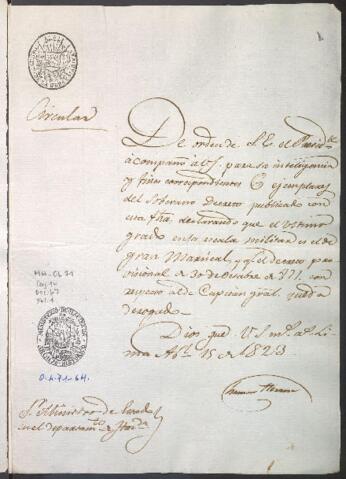 Circular
De orden de S. E. el Presid.te
acompaño a V.S. para su inteligencia
y fines correspondientes 6 ejemplares
del Soberano Decreto publicado con
esta fha. declarando que el ultimo
grado en la escala militar es el de
gran Mariscal, y q.e el decreto pro-
visional de 30 de Diciembre de 821 con
respecto al de Capitan gral. queda
derogado.
Dios gue. V.S. m.s a.s Li-
ma Ab.l 15 de 1823
MH-OL 71
O.L. 71-64.
S.r Ministro de Estado
en el departam.to de Haz.da